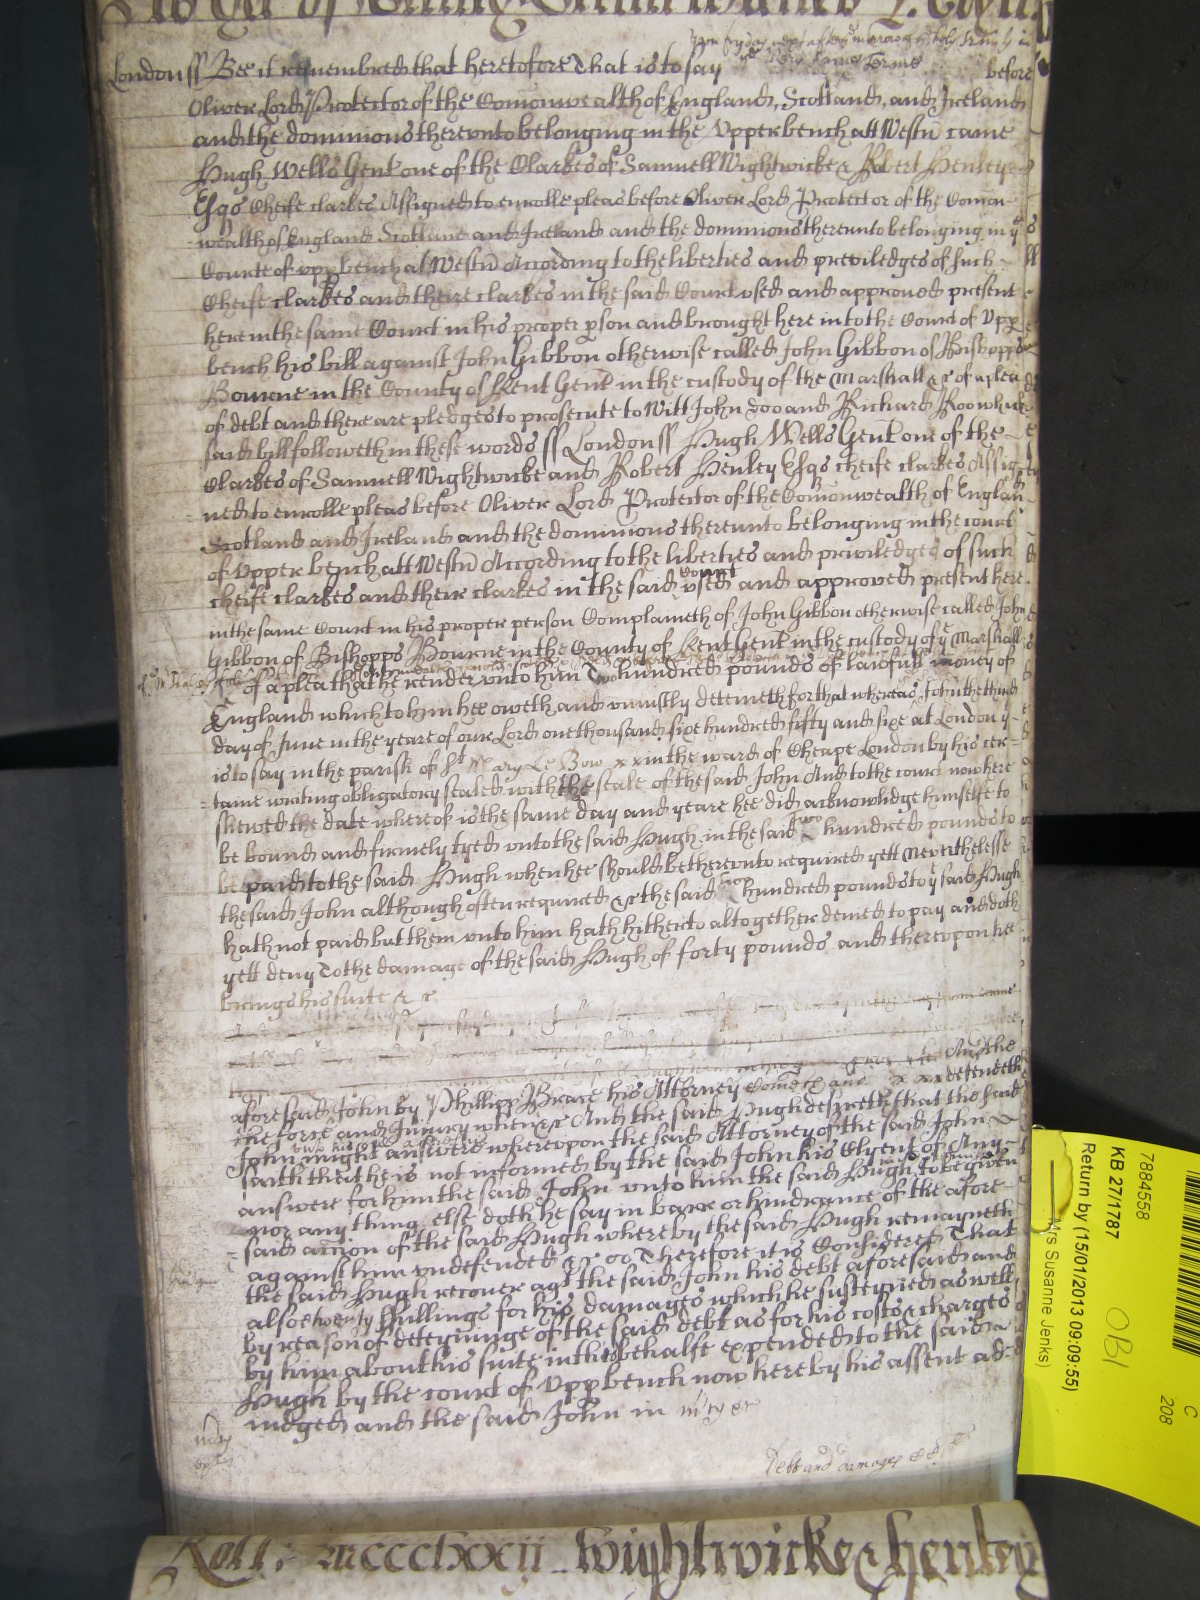 London ss Bee it remembred that heretofore That is to say before
Oliver Lord Protector of the Comonwealth of England, Scotland, and Ireland
and the dominions thereunto belonging in the Upper bench att Westm̃ came
Hugh Wells Gent one of the Clarkes of Samuell Wightwicke & Robert Henley
Esqs Cheife clarkes Assigned to enrolle pleas before Oliver Lord Protector of the Comon-
wealth of England Scotland and Ireland and the dominions thereunto belonging in ye
Courte of upp bench at Westm̃ According to the liberties and previledges of such
Cheife clarkes and theire clarkes in the said Court used and approved present
here in the same Court in his proper pson and brought here into the Court of Upp
bench his bill against John Gibbon otherwise called John Gibbon of Bishopps
Bourne in the County of Kent Gent in the custody of the Marshall &c of a plea
of debt and there are pledges to prosecute to Witt John Doo and Richard Roo which
said bill followeth in these words ss London ss Hugh Wells Gent one of the
Clarkes of Samuell Wightwicke and Robert Henley Esqs cheife clarkes Assig-
ned to enrolle pleas before Oliver Lord Protector of the Comonwealth of England
Scotland and Ireland and the dominions thereunto belonging in the court
of Upper bench att Westm̃ According to the liberties and priviledges of such
cheife clarkes and their clarkes in the said Court used and approved present here
in the same Court in his proper person Complaineth of John Gibbon otherwise called John
Gibbon of Bishopps Bourne in the County of Kent Gent in the custody of ye Marshall
of a plea that he render unto him Two hundred pounds of lawfull money of
England which to him hee oweth and uniustly deteineth for that whereas John the third
day of June in the yeare of our Lord one thousand sixe hundred fifty and sixe at London yt
is to say in the parish of St Mary Le Bow in the ward of Cheape London by his cer-
taine writing obligatory sealed with the seale of the said John And to the court now here
shewed the date whereof is the same day and yeare hee did acknowlidge himselfe to
be bound and firmely tyed unto the said Hugh in the said two hundred pounds to
be paid to the said Hugh when hee should be thereunto required yett Neverthelesse
the said John although often required &c the said two hundred pounds to ye said Hugh
hath not paid but them unto him hath hitherto altogether denied to pay and doth
yett deny To the damage of the said Hugh of forty pounds and thereupon hee
brings his suite &c
And the
aforesaid John by Phillipp Brace his Attorney Cometh and defendeth
the force and Iniury when &c And the said Hugh desireth that the said
John might answere whereupon the said Attorney of the said John
saith that he is not informed by the said John his Clyent of Any
answere for him the said John unto him the said Hugh to be given
nor any thing else doth he say in barr or hindrance of the afore-
said action of the said Hugh whereby the said Hugh remayneth
against him undefended &c Therefore it is Considered That
the said Hugh recover agt the said John his debt aforesaid and
alsoe twenty shillings for his damages which he susteyned as well
by reason of deteyninge of the said debt as for his costs & charges
by him about his suite in this behalfe expended to the said
Hugh by the court of Upp bench now here by his assent ad-
iudged and the said John in mcy &c
Debt and damages
Roll: mccclxxii Wightwicke & henley
7884558
KB 27/1787
Return by (15/01/2013 09:09:55)
Mrs Susanne Jenks)
OBI
C
208